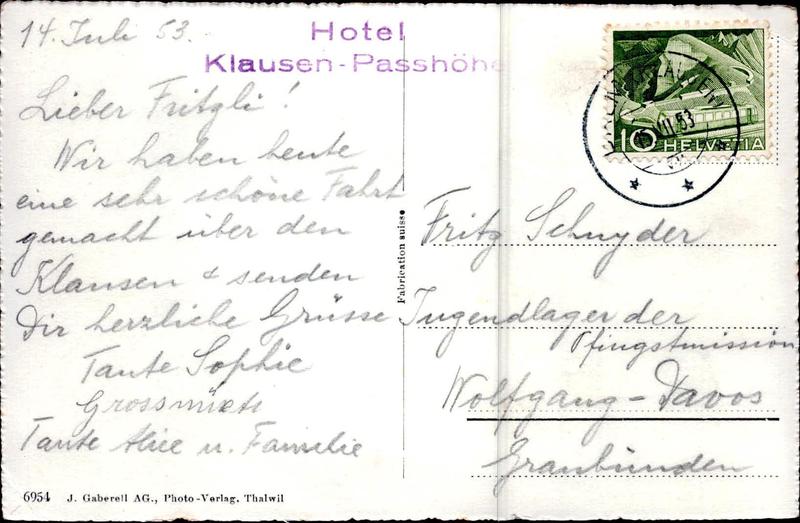 14. Juli 53.
Hotel
Klausen-Passhöhe
Lieber Fritzli!
Wir haben heute
eine sehr schöne Fahrt
gemacht über den
Klausen & senden
Dir herzliche Grüsse
Tante Sophie
Grossmüeti
Tante Alice u. Familie
6954 J. Gaberell AG., Photo-Verlag, Thalwil
Fabrication suisse
10 HELVETIA
VII.53
Fritz Schnyder
Jugendlager der
Pfingstmission
Wolfgang-Davos
Graubünden